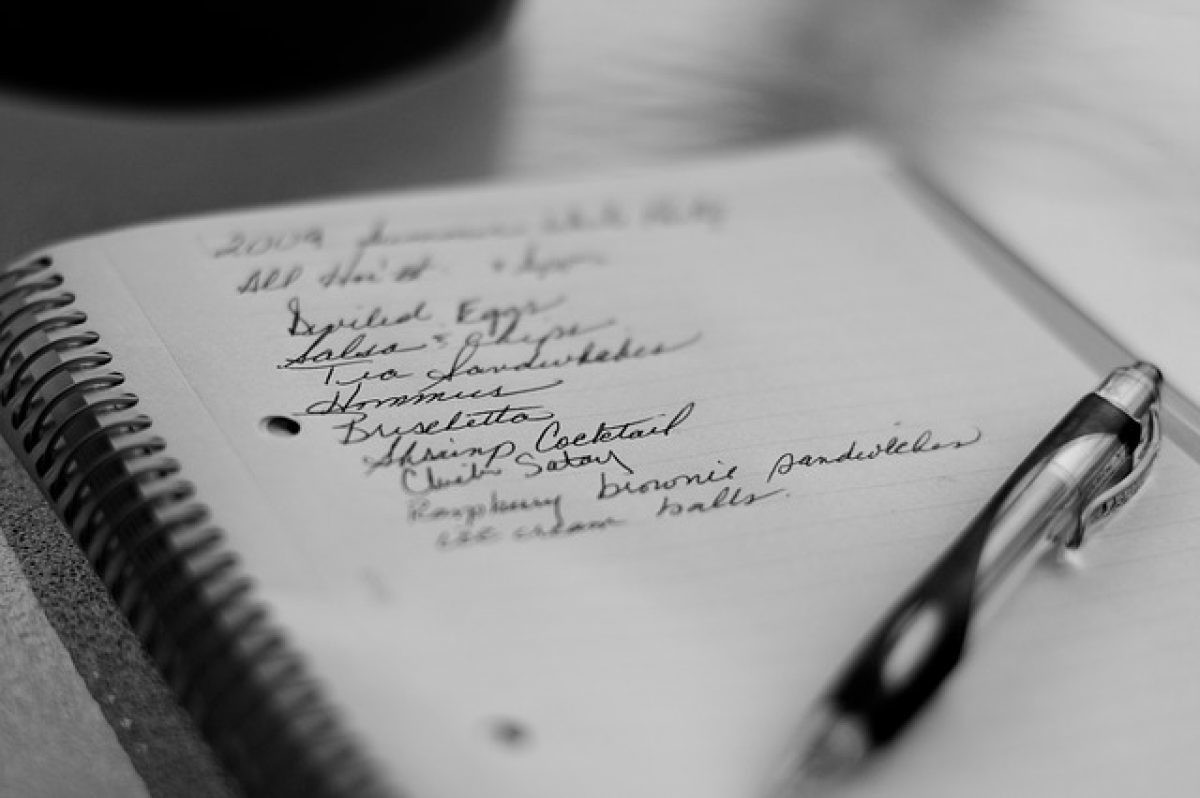 2009 Summer White Party
All Hor's + Apps
Deviled Eggs
Salsa & Chips
Tea Sandwiches
Hommus
Bruschetta
Shrimp Cocktail
Satay
Raspberry brownie sandwiches
ice cream balls.